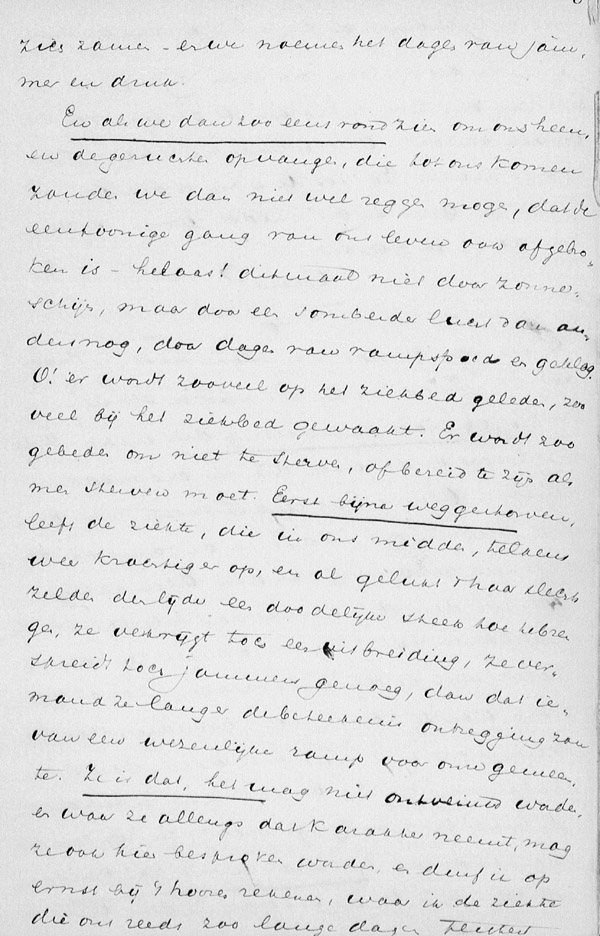 zien zamen - en we noemen het dagen van jam-
mer en druk.
En als we dan zoo eens rond zien om ons heen,
en de geruchten opvangen, die tot ons komen
zouden we dan niet wel zeggen mogen, dat de
eentoonige gang van ons leven ook afgebro-
ken is - helaas! ditmaal niet door zonne-
schijn, maar door een somberder lucht dan an-
ders nog, door dagen van rampspoed en geklag.
O! er wordt zooveel op het ziekbed geleden, zoo
veel bij het ziekbed gewaakt. Er wordt zoo
gebeden om niet te sterven, of bereid te zijn als
men sterven moet. Eerst bijna weggestorven,
leeft de ziekte, die in ons midden, telkens
weer krachtiger op, en al gelukt 't haar slechts
zelden der lijder een doodelijke steek toe te bren
gen, ze verkrijgt toch een uitbreiding, ze ver-
spreidt toch jammers genoeg, dan dat ie-
mand ze langer de beteekenis ontzegging zou
van een wezenlijke ramp voor onze gemeen-
te. Ze is dat, het mag niet ontveinsd worden,
en waar ze allengs dat karakter neemt, mag
ze ook hier besproken worden, en durf ik op
ernst bij 't hooren rekenen, waar ik de ziekte
die ons reeds zoo lange dagen teistert